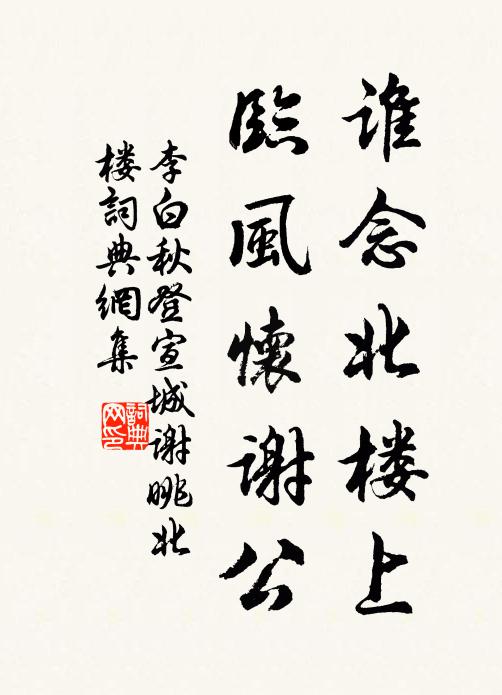 谁念北楼上
臨風懷谢公
李白秋登宣城谢朓北
楼詞典網集
詞典
网印